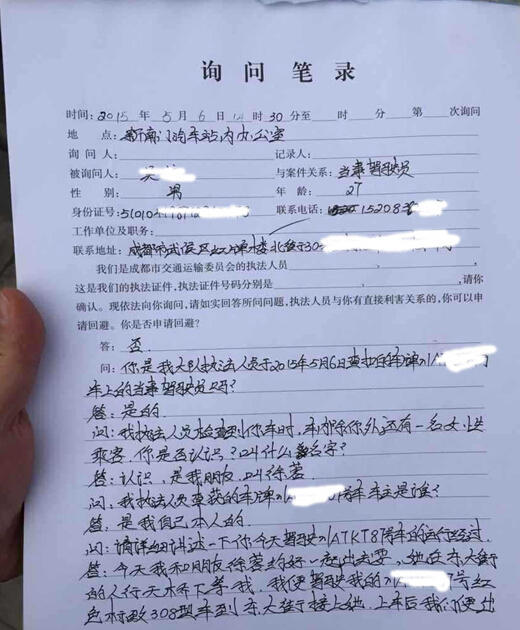 询问笔录
时间：2015年5月6日14时30分至 时 分 第 次询问
地 点：新南门汽车站内办公室
询 问 人： 记录人：
被询问人：吴 与案件关系：当事驾驶员
性 别：男 年 龄：27
身份证号：51010 联系电话：15208
工作单位及职务：
联系地址：成都市武侯区 楼北街30
我们是成都市交通运输委员会的执法人员
这是我们的执法证件，执法证件号码分别是 ，请你
确认。现依法向你询问，请如实回答所问问题，执法人员与你有直接利害关系的，你可以申
请回避。你是否申请回避？
答：否.
问：你是我大队执法人员于2015年5月6日查扣的车牌川A
车上的当事驾驶员吗？
答：是的.
问：我执法人员检查到你车时，车内除你外还有一名女性
乘客，你是否认识？叫什么名字？
答：认识，是我朋友，叫徐蓉
问：我执法人员查获的车牌川A 号车车主是谁？
答，是我自己本人的.
问：请详细讲述一下你今天驾驶川ATKT87号车的运行经过.
答：今天我和朋友徐蓉约好一起出去耍，她在东大街
的人行天桥下等我，我便驾驶我的川A 7号红
色标致308型车到东大街接上她，上车后我们便出